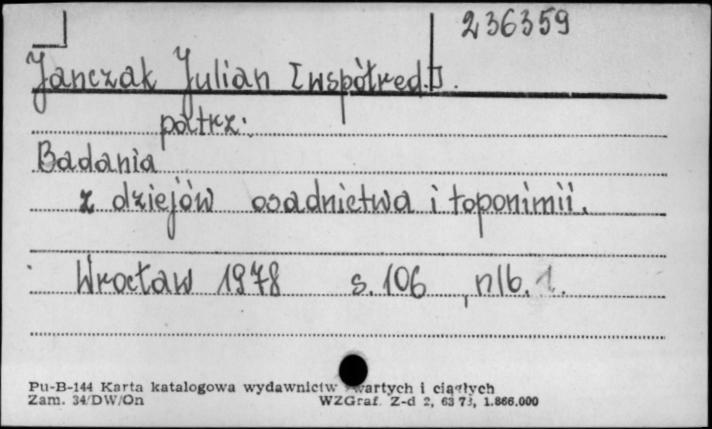 236359
Janczak Julian [współred.].
patrz:
Badania
z dziejów osadnictwa i toponimii.
Wrocław 1978 s. 106, nlb. 1.
Pu-B-144 Karta katalogowa wydawnictw zwartych i ciągłych
Zam. 34/DW/On WZGraf. Z-d 2, 63 73, 1.866.000